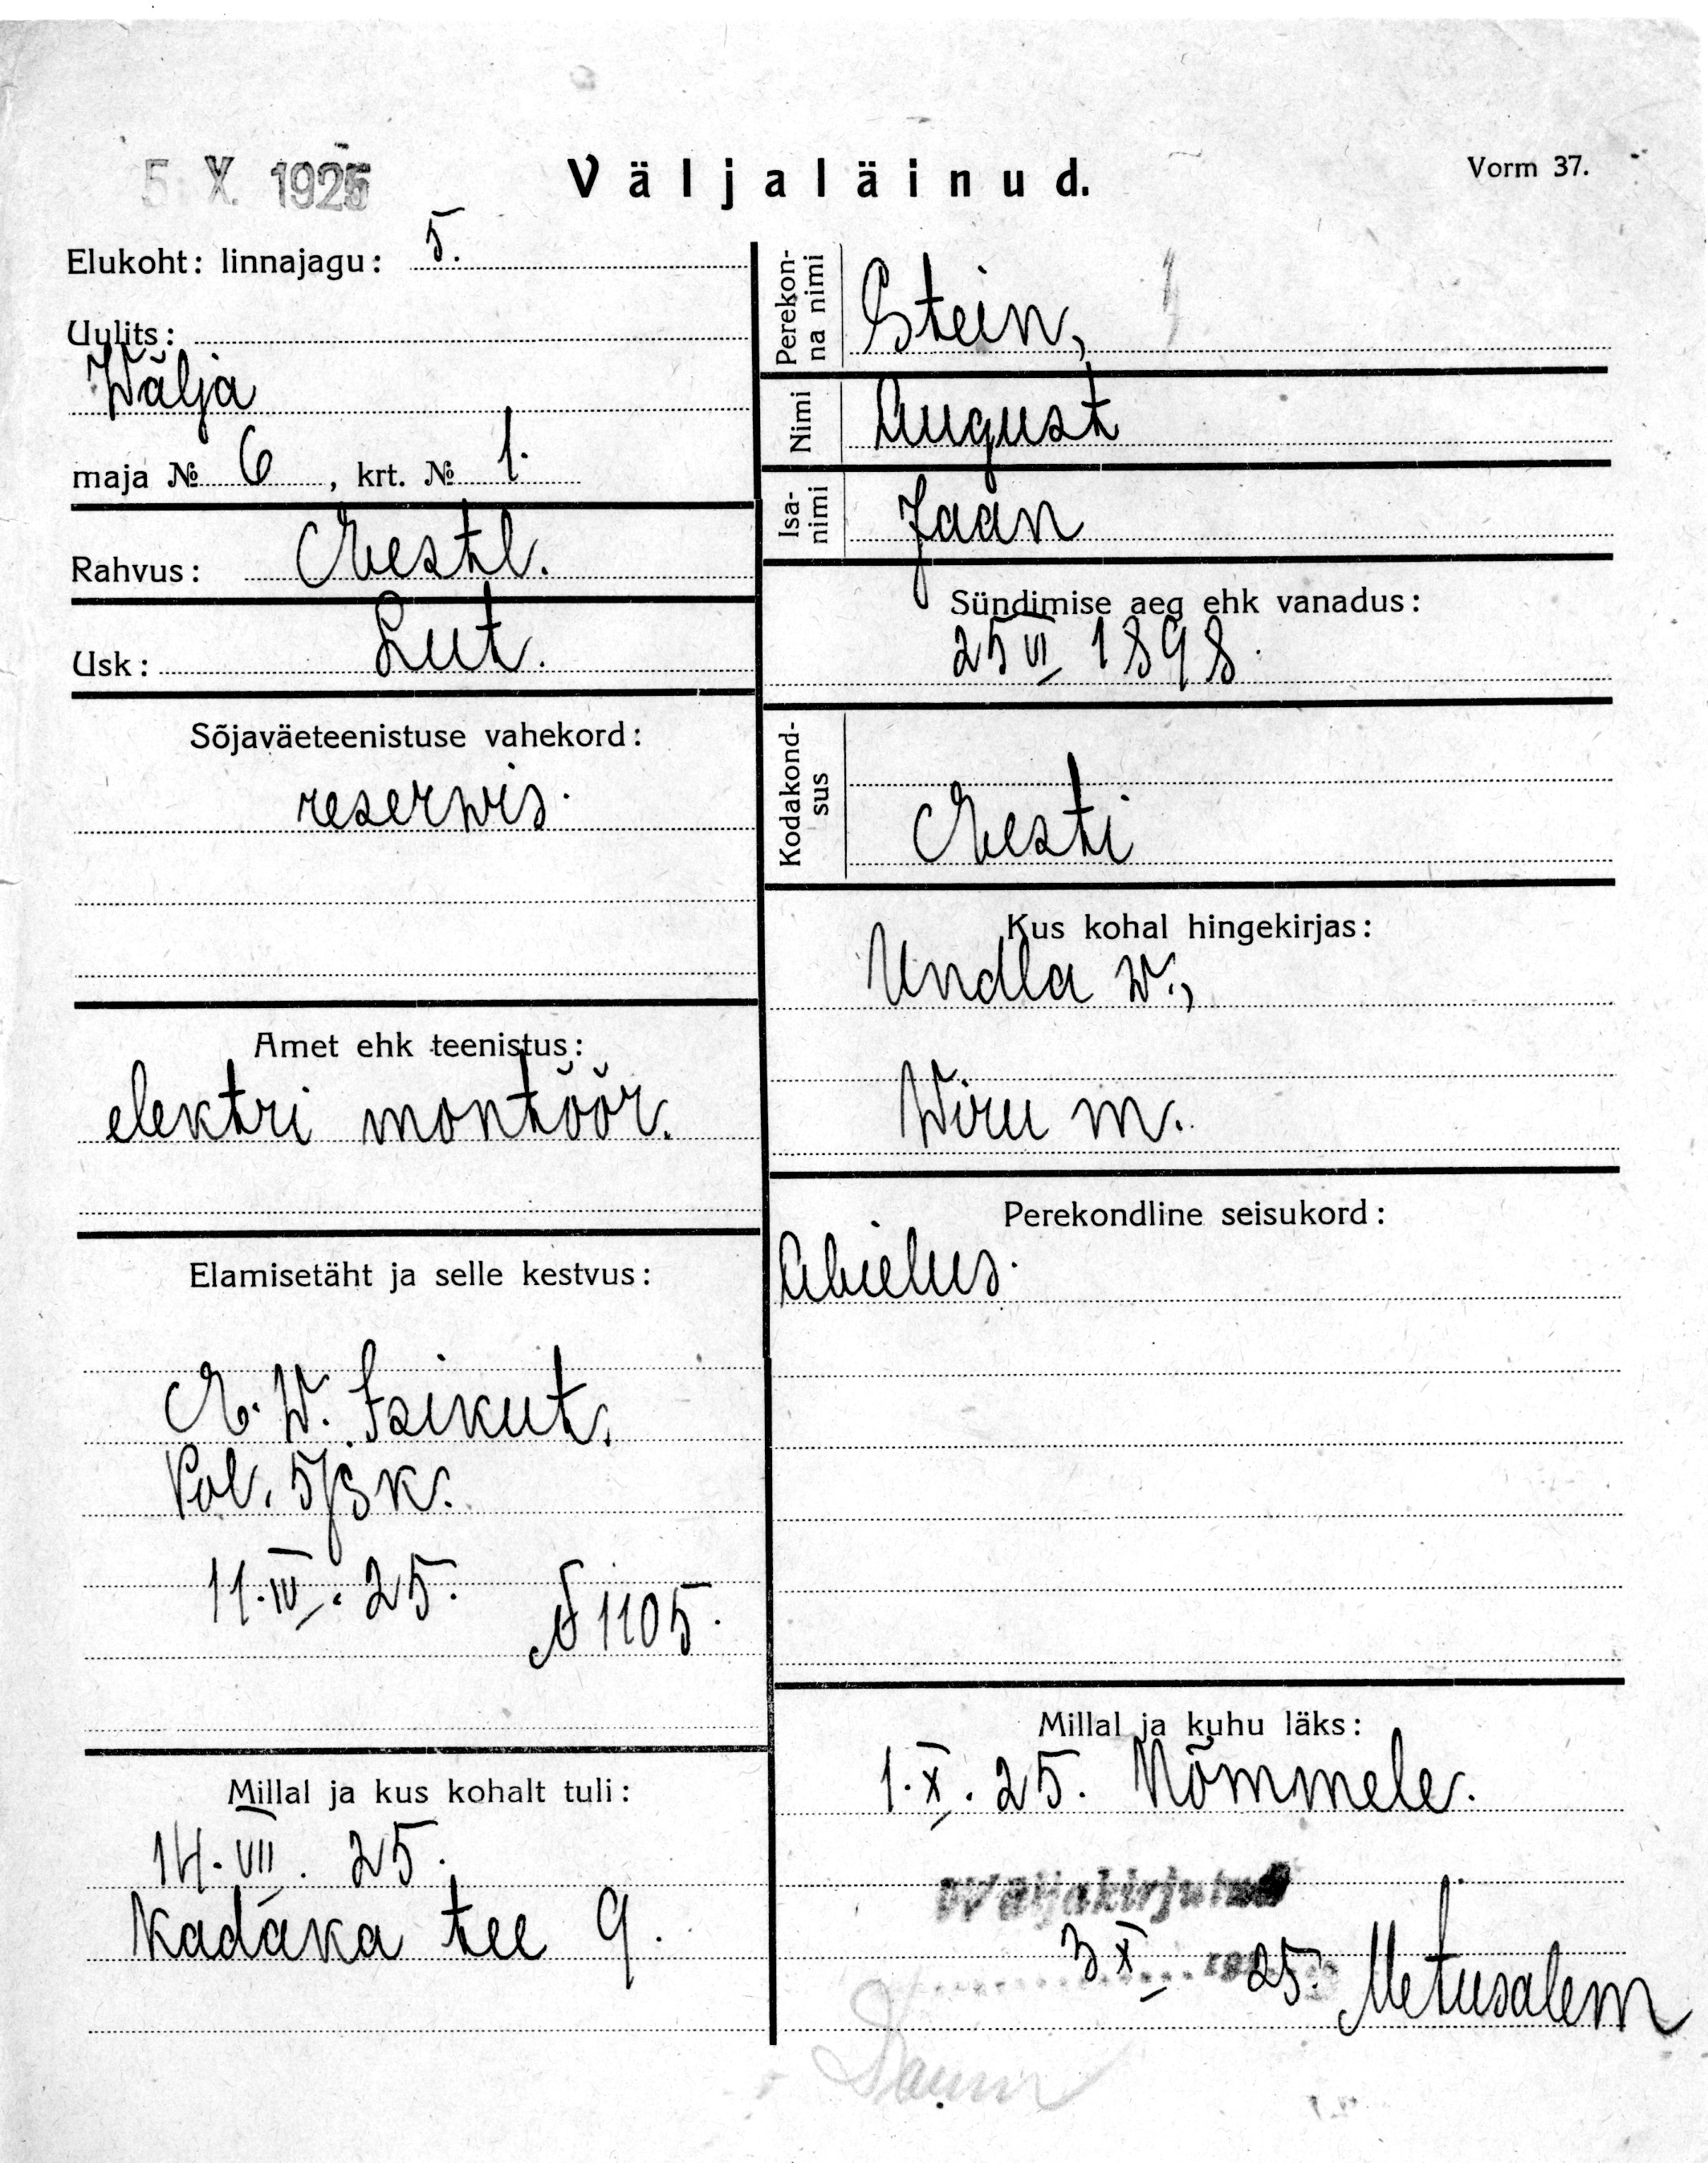 5 X. 1925
Väljaläinud.
Vorm 37.
Elukoht: linnajagu: 5.
Uulits:
Wälja
maja № 6, krt. № 1.
Rahvus: Eestl.
Usk: Lut.
Sõjaväeteenistuse vahekord:
reserwis.
Amet ehk teenistus:
elektri montöör.
Elamisetäht ja selle kestvus:
E. W. Isikut.
Pol. 5/jsk.
11.IV.25. № 1105.
Millal ja kus kohalt tuli:
14.VII.25.
Kadaka tee 9.
Perekonna nimi
Stein,
Nimi
August
Isanimi
Jaan
Sündimise aeg ehk vanadus:
25 VI 1898.
Kodakondsus
Eesti
Kus kohal hingekirjas:
Undla w.,
Wiru m.
Perekondline seisukord:
Abielus.
Millal ja kuhu läks:
1.X.25. Nõmmele.
Wäljakirjutud
3 X 1925. Metusalem